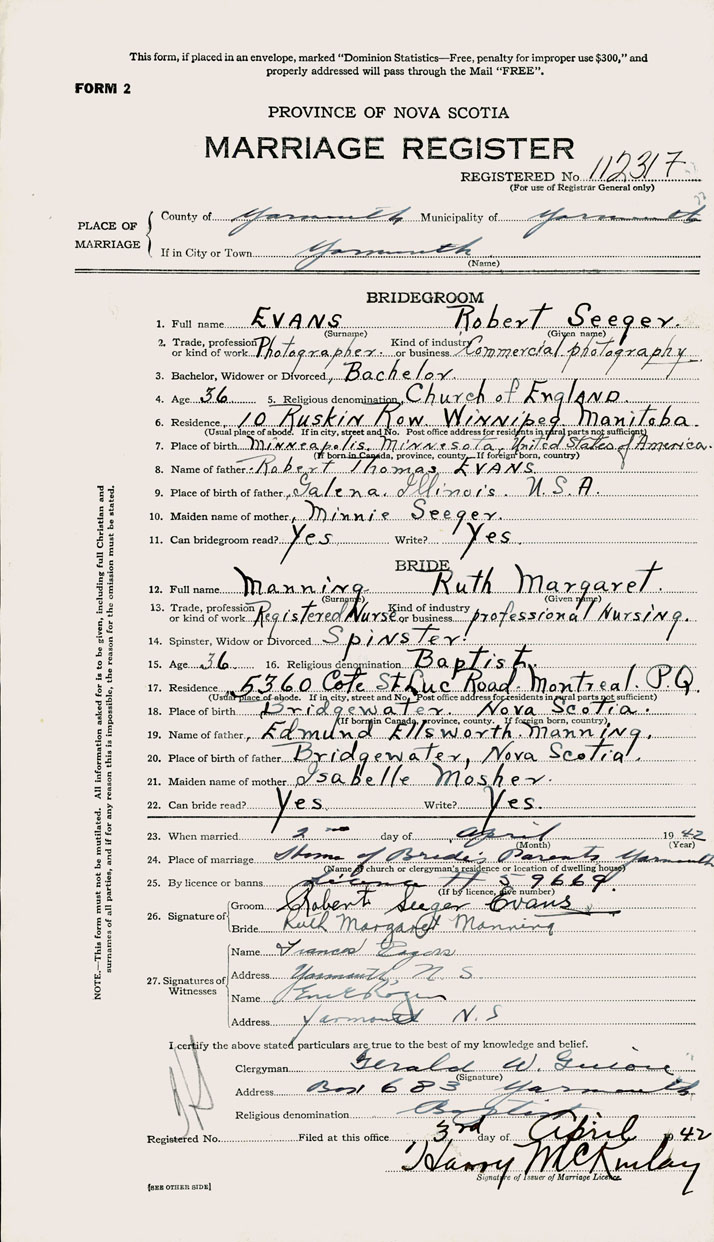 This form, if placed in an envelope, marked "Dominion Statistics—Free, penalty for improper use $300," and
properly addressed will pass through the Mail "FREE".
FORM 2
PROVINCE OF NOVA SCOTIA
MARRIAGE REGISTER
REGISTERED No. 112317
(For use of Registrar General only)
PLACE OF MARRIAGE
County of Yarmouth Municipality of Yarmouth
If in City or Town Yarmouth
(Name)
BRIDEGROOM
1. Full name EVANS Robert Seeger.
(Surname) (Given name)
2. Trade, profession or kind of work Photographer Kind of industry or business Commercial photography
3. Bachelor, Widower or Divorced, Bachelor.
4. Age 36 5. Religious denomination, Church of England.
6. Residence, 10 Ruskin Row Winnipeg Manitoba.
(Usual place of abode. If in city, street and No. Post office address for residents in rural parts not sufficient)
7. Place of birth Minneapolis, Minnesota, United States of America.
(If born in Canada, province, county. If foreign born, country)
8. Name of father Robert Thomas EVANS
9. Place of birth of father, Galena. Illinois. U.S.A.
10. Maiden name of mother, Minnie Seeger.
11. Can bridegroom read? Yes Write? Yes.
BRIDE
12. Full name Manning Ruth Margaret.
(Surname) (Given name)
13. Trade, profession or kind of work Registered Nurse Kind of industry or business professional Nursing.
14. Spinster, Widow or Divorced Spinster.
15. Age 36 16. Religious denomination Baptist.
17. Residence, 5360 Cote St Luc Road Montreal. P.Q.
(Usual place of abode. If in city, street and No. Post office address for residents in rural parts not sufficient)
18. Place of birth Bridgewater Nova Scotia.
(If born in Canada, province, county. If foreign born, country)
19. Name of father, Edmund Ellsworth Manning.
20. Place of birth of father Bridgewater, Nova Scotia.
21. Maiden name of mother Isabelle Mosher.
22. Can bride read? Yes Write? Yes.
23. When married 2nd day of April 1942
(Month) (Year)
24. Place of marriage Home of Bride's Parents Yarmouth
(Name of church or clergyman's residence or location of dwelling house)
25. By licence or banns Licence H 59669.
(If by licence, give number)
26. Signature of
Groom Robert Seeger Evans
Bride Ruth Margaret Manning
27. Signatures of Witnesses
Name Frances
Address Yarmouth N.S
Name
Address Yarmouth N.S
I certify the above stated particulars are true to the best of my knowledge and belief.
Clergyman Gerald W. Guiou
(Signature)
Address Box 683 Yarmouth
Religious denomination Baptist
Registered No. Filed at this office 3rd day of April 1942
Harry McKinlay
Signature of Issuer of Marriage Licence.
[SEE OTHER SIDE]
NOTE.—This form must not be mutilated. All information asked for is to be given, including full Christian and
surnames of all parties, and if for any reason this is impossible, the reason for the omission must be stated.